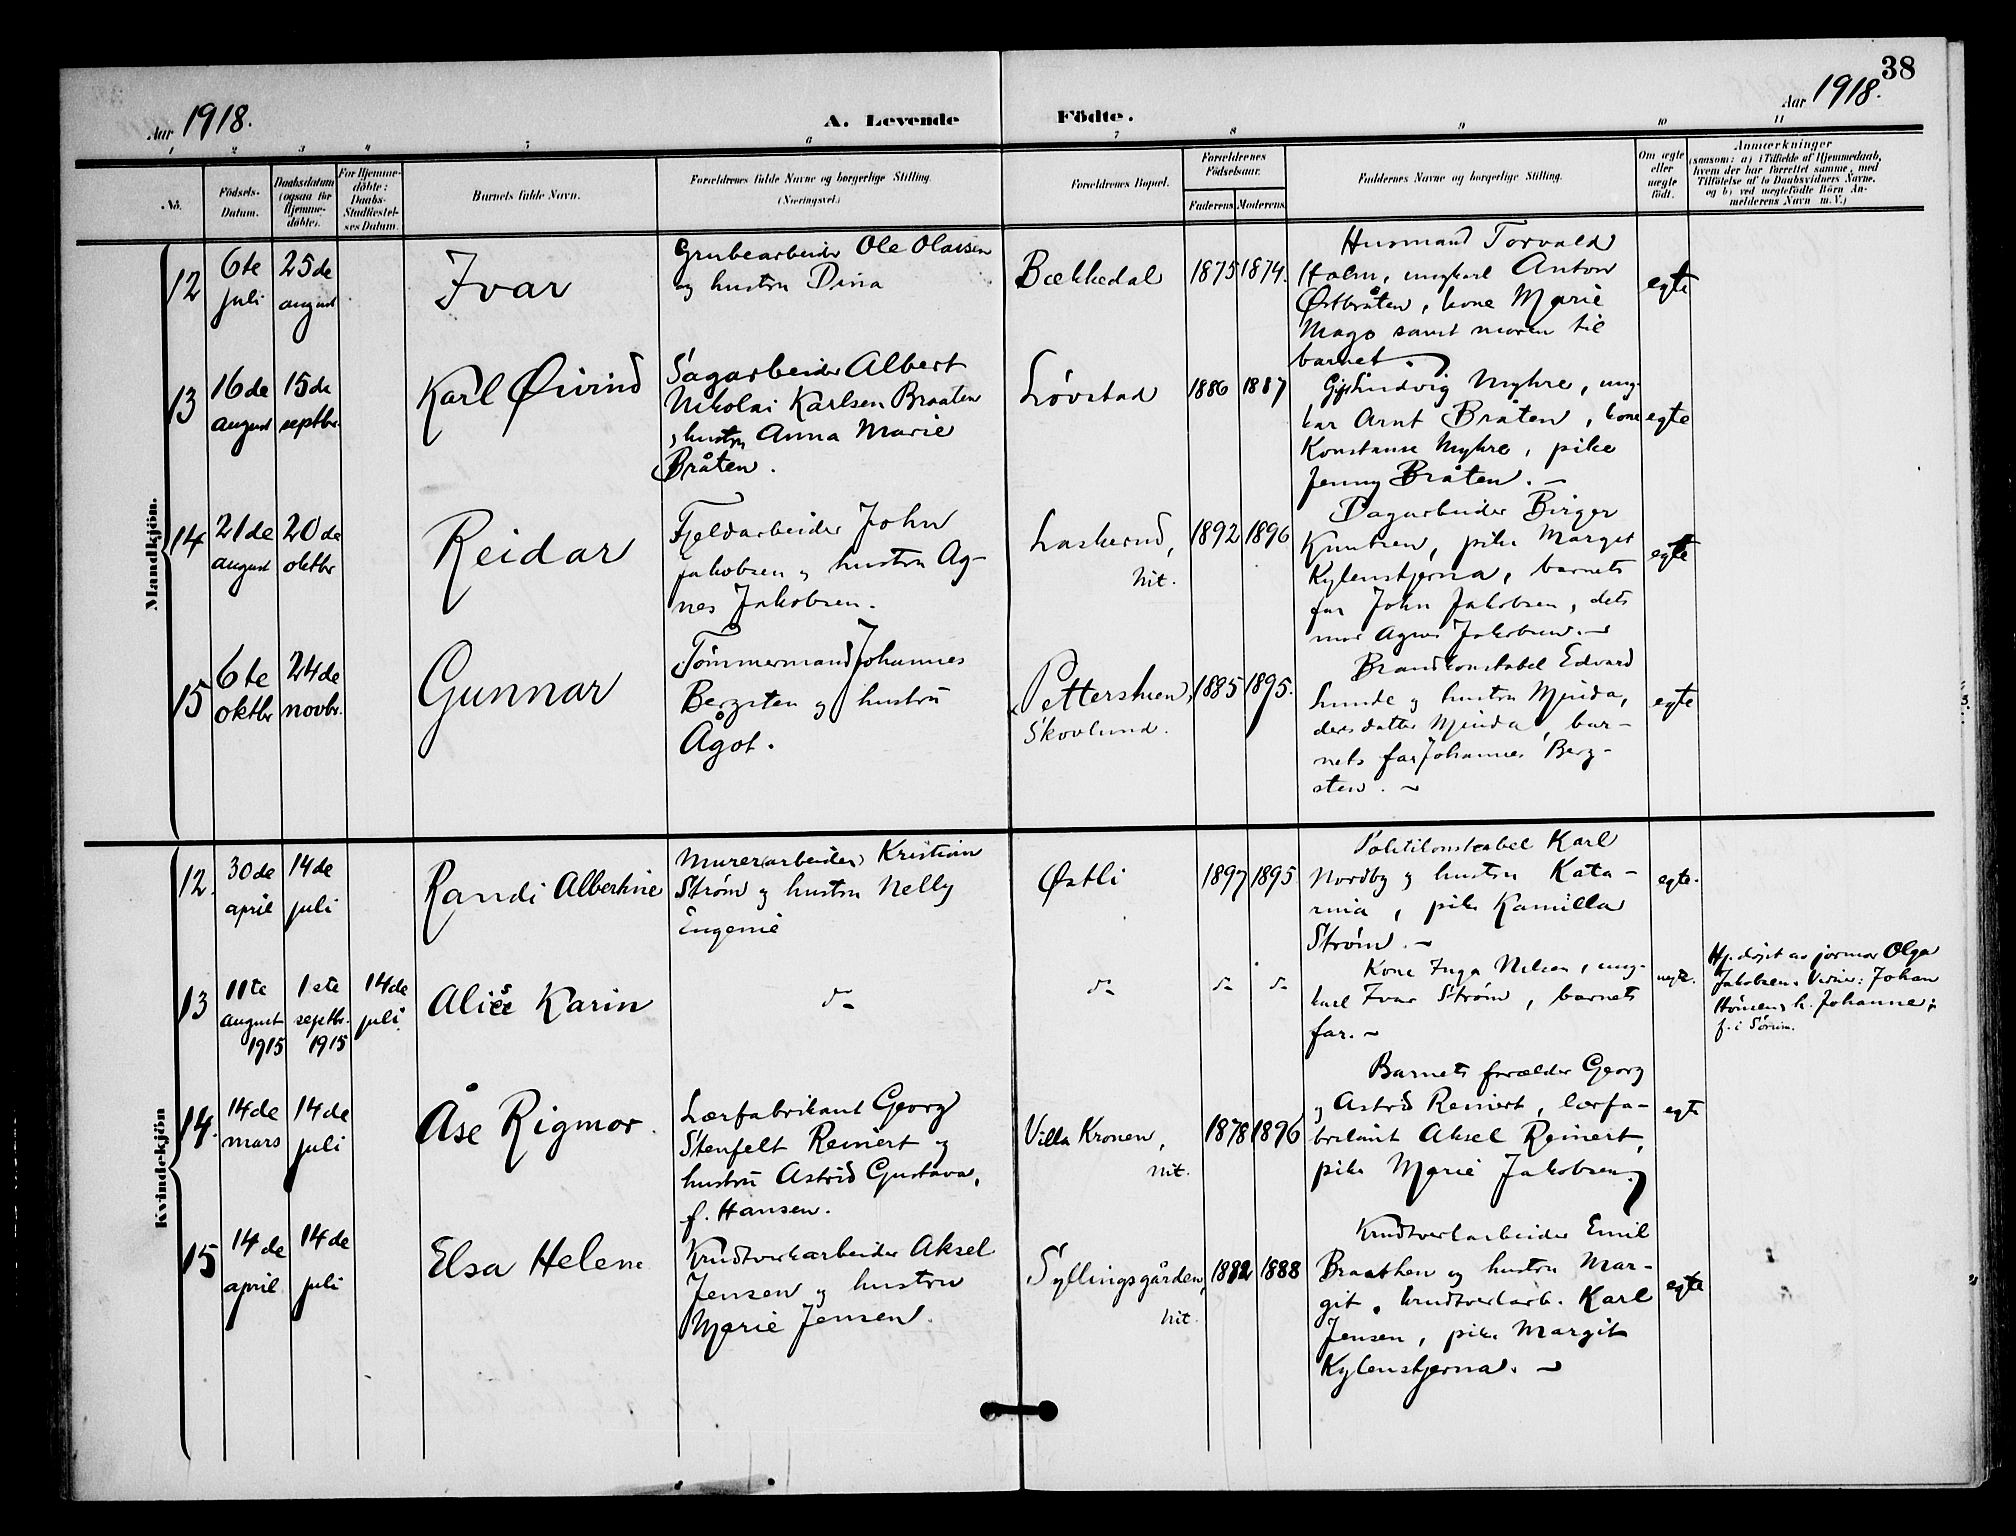 38
Aar 1918.
A. Levende Födte.
Aar 1918.
1 2 3 4 5 6 7 8 9 10 11
No.
Födsels-
Datum.
Daabsdatum
(ogsaa for
Hjemme-
döbte).
For Hjemme-
döbte:
Daabs-
Stadfæstel-
ses Datum.
Barnets fulde Navn.
Forældrenes fulde Navne og borgerlige Stilling.
(Næringsvei.)
Forældrenes Bopæl.
Forældrenes
Födselsaar.
Faderens
Moderens
Faddernes Navne og borgerlige Stilling.
Om ægte
eller
uægte
födt.
Anmærkninger
(saasom: a) i Tilfælde af Hjemmedaab,
hvem der har forrettet samme, med
Tilföielse af to Daabsvidners Navne,
og b) ved uægtefödte Börn An-
melderens Navn m. V.)
Mandkjön.
12
6te
juli
25de
august
Ivar
Grubearbeider Ole Olaisen
og hustru Dina
Bækkedal
1875
1874.
Husmand Torvald
Holm, ungkarl Anton
Østbråten, kone Marie
Mago samt moren til
barnet.
egte
13
16de
august
15de
septbr.
Karl Øivind
Sagarbeider Albert
Nikolai Karlsen Braaten
, hustru Anna Marie
Bråten.
Løvstad
1886
1887
Ludvig Myhre, ung-
kar Arnt Bråten, kone
Konstanse Myhre, pike
Jenny Bråten. —
egte
14
21de
august
20de
oktbr
Reidar
Fjeldarbeider John
Jakobsen og hustru Ag-
nes Jakobsen.
Laskerud,
Nit.
1892
1896
Dagarbeider Birger
Knutsen, pike Margit
Kylenstjerna, barnets
far John Jakobsen, dets
mor Agnes Jakobsen. —
egte
15
6te
oktbr
24de
novbr.
Gunnar
Tømmermand Johannes
Bergsten og hustru
Ågot.
Petterstuen,
Skovlund.
1885
1895.
Brandkonstabel Edvard
Lunde og hustru Minda,
deres datter Minda, bar-
nets far Johannes Berg-
sten. —
egte
Kvindekjön
12.
30de
april
14de
juli
Randi Albertine
Murer(arbeider) Kristian
Strøm og hustru Nelly
Eugenie
Østli
1897
1895
Politikonstabel Karl
Nordby og hustru Kata-
rina, pike Kamilla
Strøm. —
egte.
13
11te
august
1915
1ste
septbr.
1915
14de
juli
Alise Karin
do
do
do
do
Kone Inga Nilsen, ung-
karl Ivar Strøm, barnets
far. —
uegte.
Hj. døpt av jormor Olga
Jakobsen. Vidner: Johan
h. Johanne
f. i Sørum.
14.
14de
mars
14de
juli
Åse Rigmor.
Lærfabrikant Georg
Stenfelt Reinert og
hustru Astrid Gustava,
f. Hansen.
Villa Kronen,
Nit.
1878
1896
Barnets forælder Georg
og Astrid Reinert, lærfa-
brikant Aksel Reinert,
pike Marie Jakobsen.
egte
15
14de
april
14de
juli
Elsa Helene
Krudtverkarbeider Aksel
Jensen og hustru
Marie Jensen.
Syllingsgården,
Nit.
1882
1888
Krudtverkarbeider Emil
Braathen og hustru Mar-
git, krudtverkarb. Karl
Jensen, pike Margit
Kylenstjerna. —
egte